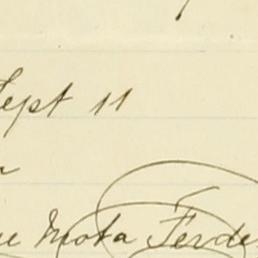 Sept 11
Mota Ferde